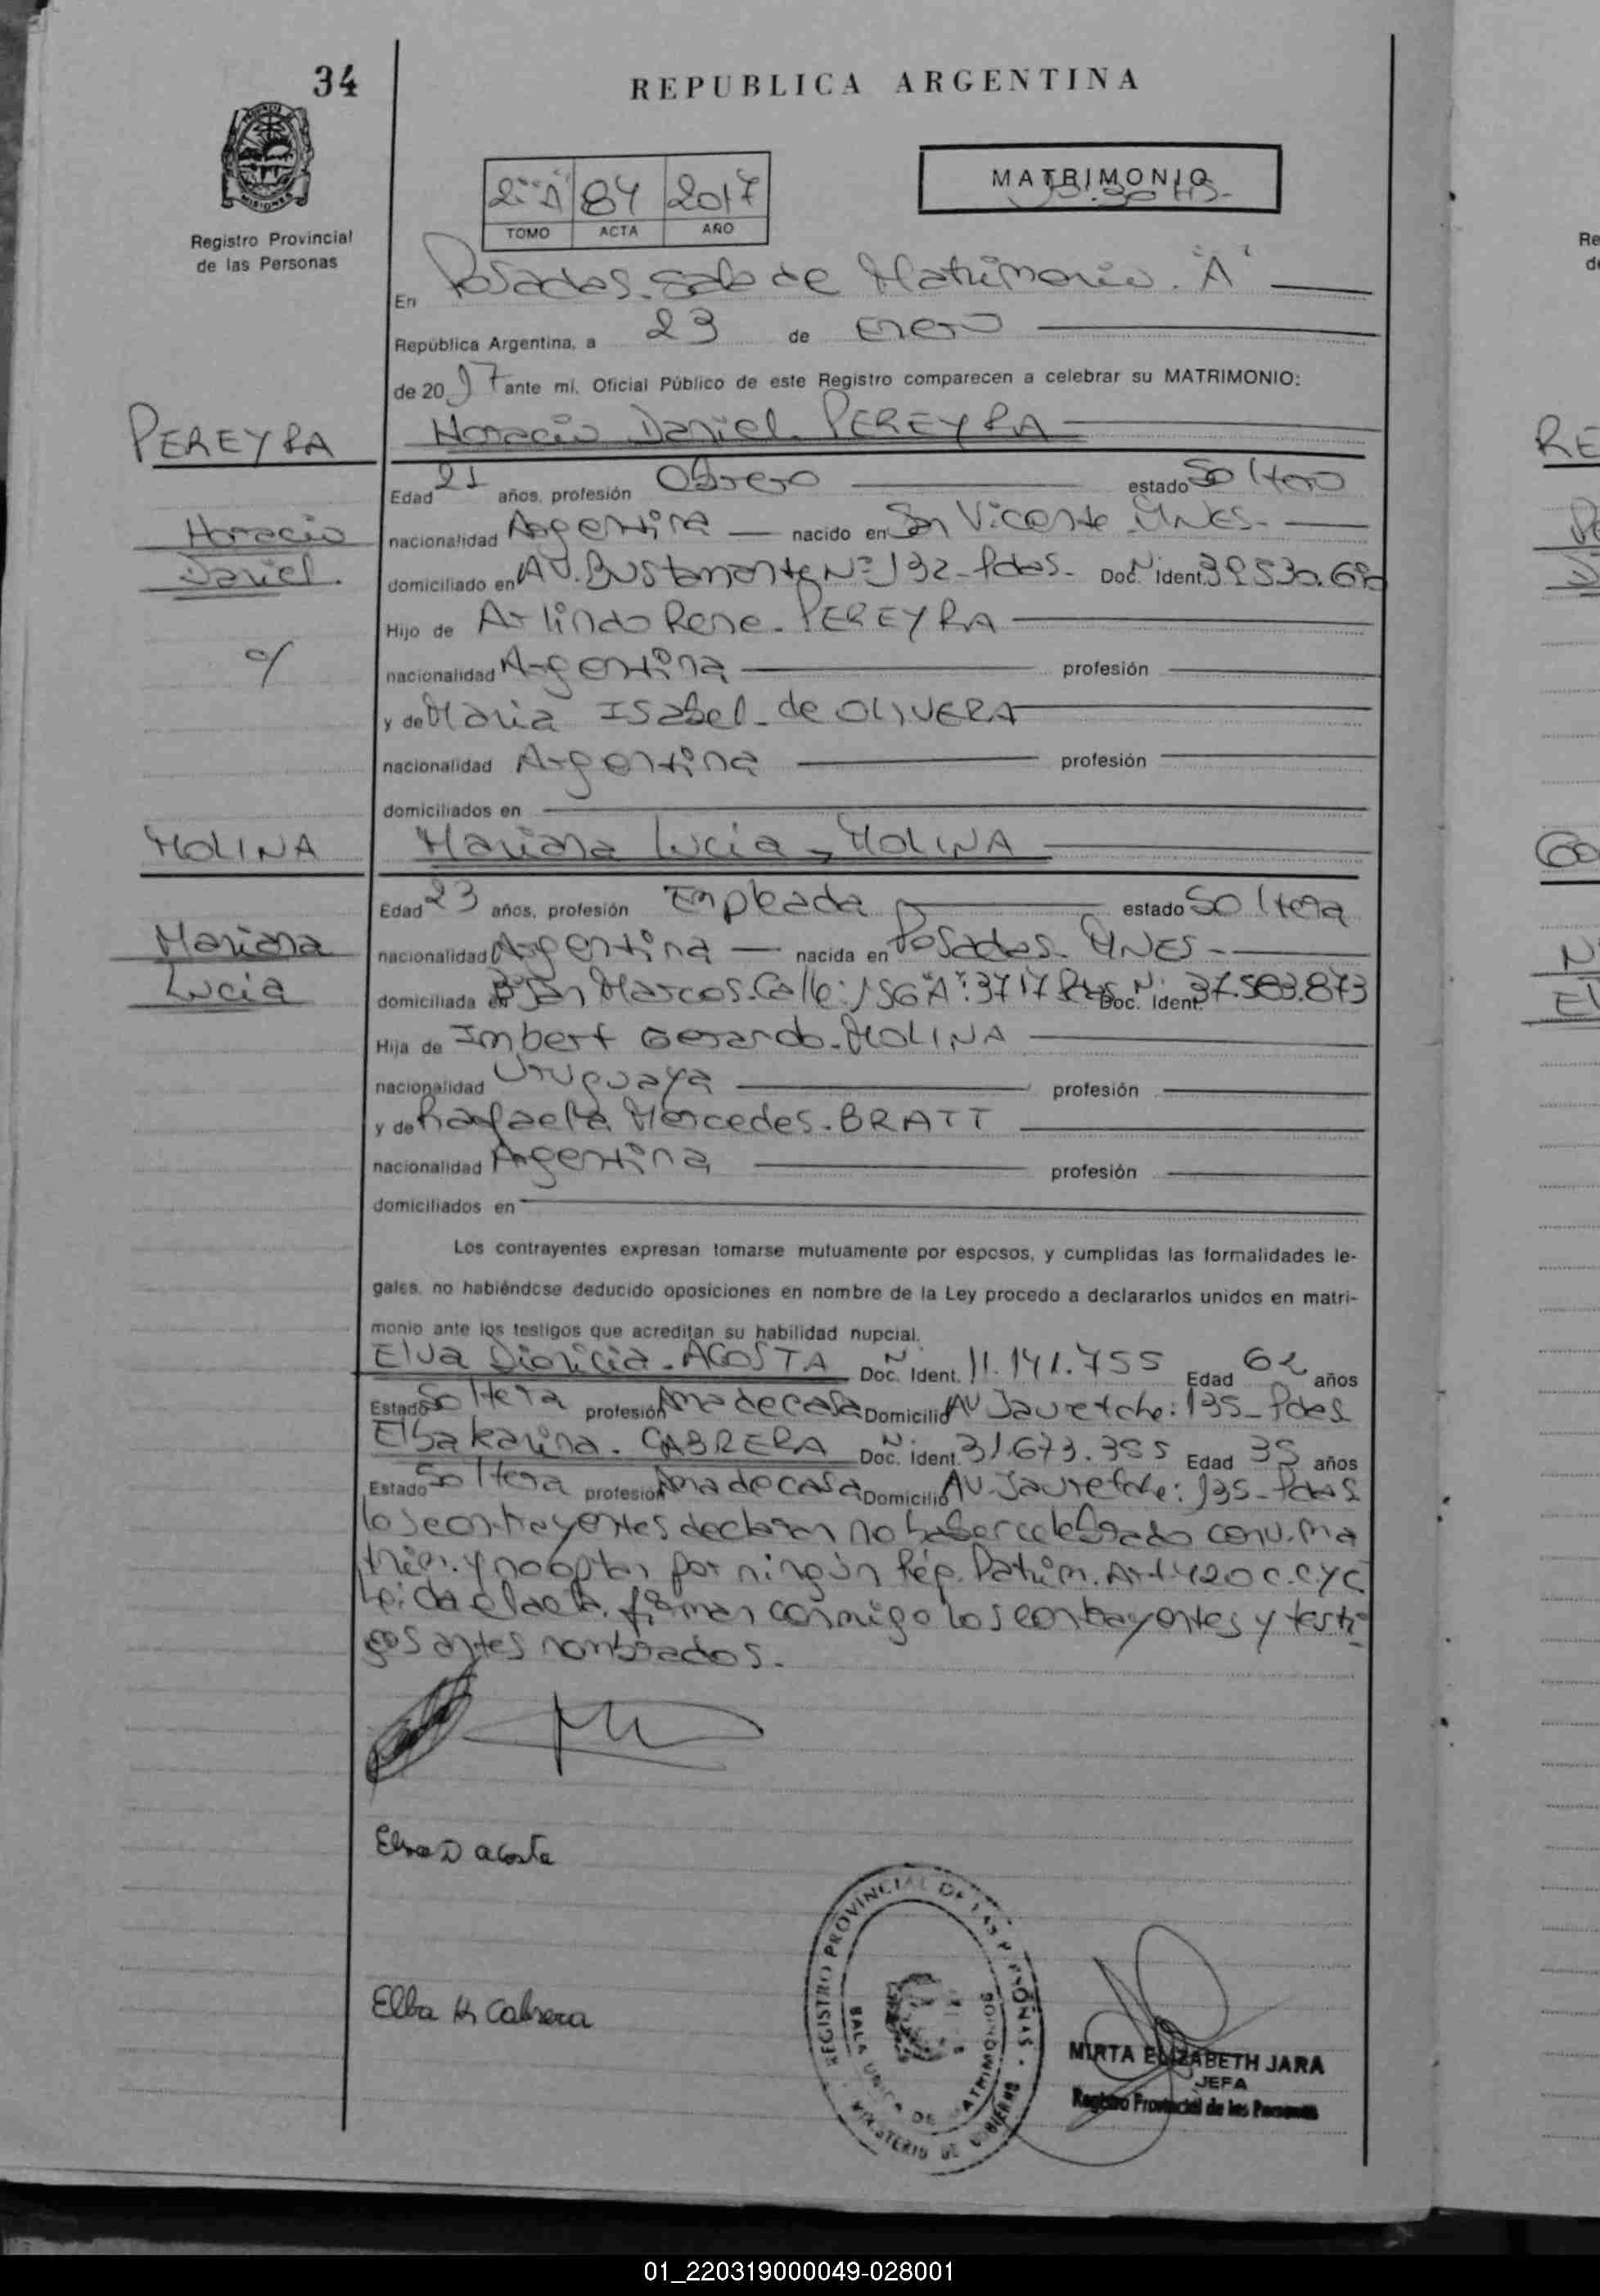 34
REPUBLICA ARGENTINA
MISIONES
Registro Provincial
de las Personas
2º "A" 84 2017
TOMO ACTA AÑO
MATRIMONIO
En Posadas. Sala de Matrimonio. "A"
República Argentina, a 23 de Enero
de 2017 ante mí, Oficial Público de este Registro comparecen a celebrar su MATRIMONIO:
PEREYRA
Horacio Daniel. PEREYRA
Edad 21 años, profesión Obrero estado Soltero
Horacio
nacionalidad Argentina nacido en San Vicente MNES.
Daniel.
domiciliado en AV. Bustamante Nº 132 - Pdas. Doc. Nº Ident.
Hijo de Arlindo Rene. PEREYRA
c/
nacionalidad Argentina profesión
y de Maria Isabel. de OLIVERA
nacionalidad Argentina profesión
domiciliados en
MOLINA
Mariana Lucia. MOLINA
Edad 23 años, profesión Empleada estado Soltera
Mariana
nacionalidad Argentina nacida en Posadas. MNES.
Lucia
domiciliada en Bº San Marcos. Calle: 156 "A": 3717 Pdas Doc. Nº Ident. 37.583.873
Hija de Imbert Gerardo. MOLINA
nacionalidad Uruguaya profesión
y de Rafaela Mercedes. BRATT
nacionalidad Argentina profesión
domiciliados en
Los contrayentes expresan tomarse mutuamente por esposos, y cumplidas las formalidades le-
gales, no habiéndose deducido oposiciones en nombre de la Ley procedo a declararlos unidos en matri-
monio ante los testigos que acreditan su habilidad nupcial.
Elva Dionicia. AGOSTA Doc. Nº Ident. 11.141.755 Edad 62 años
Estado Soltera profesión Ama de casa Domicilio AV Jauretche: 135 - Pdas
Elba Karina. CABRERA Doc. Nº Ident. 31.673.355 Edad 35 años
Estado Soltera profesión Ama de casa Domicilio AV. Jauretche: 135 - Pdas
los contrayentes declaran no haber celebrado conv. ma
trim. y no optar por ningún Rég. Patrim. Art. 420 C.C.y C
Leida el acta. firman conmigo los contrayentes y testi-
gos antes nombrados.
Elva D acosta
Elba K Cabrera
REGISTRO PROVINCIAL DE LAS PERSONAS - MINISTERIO DE GOBIERNO
SALA UNICA DE MATRIMONIOS
MIRTA ELIZABETH JARA
JEFA
Registro Provincial de las Personas
01_220319000049-028001